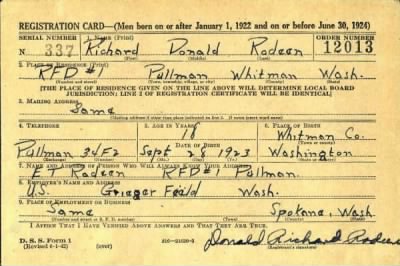 REGISTRATION CARD—(Men born on or after January 1, 1922 and on or before June 30, 1924)
SERIAL NUMBER 1. NAME (Print) ORDER NUMBER
N 337 Richard Donald Rodeen 12013
(First) (Middle) (Last)
2. PLACE OF RESIDENCE (Print)
RFD #1 Pullman Whitman Wash.
(Number and street) (Town, township, village, or city) (County) (State)
[THE PLACE OF RESIDENCE GIVEN ON THE LINE ABOVE WILL DETERMINE LOCAL BOARD
JURISDICTION; LINE 2 OF REGISTRATION CERTIFICATE WILL BE IDENTICAL]
3. MAILING ADDRESS
Same
[Mailing address if other than place indicated on line 2. If same insert word same]
4. TELEPHONE 5. AGE IN YEARS 6. PLACE OF BIRTH
18 Whitman Co.
DATE OF BIRTH
Pullman 24F2 Sept 26 1923 Washington
(Exchange) (Number) (Mo.) (Day) (Yr.) (State or country)
7. NAME AND ADDRESS OF PERSON WHO WILL ALWAYS KNOW YOUR ADDRESS
E T Rodeen RFD #1 Pullman
8. EMPLOYER'S NAME AND ADDRESS
U.S. Field Wash.
9. PLACE OF EMPLOYMENT OR BUSINESS
Same Spokane, Wash
(Number and street or R. F. D. number) (Town) (County) (State)
I AFFIRM THAT I HAVE VERIFIED ABOVE ANSWERS AND THAT THEY ARE TRUE.
D. S. S. Form 1
(Revised 6-1-42) (over) Donald Richard Rodeen